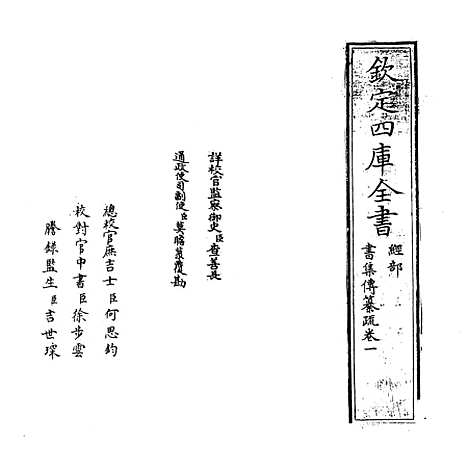 欽定四庫全書
經部
書集傳纂疏卷一
詳校官監察御史臣查善長
通政使司副使臣莫瞻菉覆勘
總校官庶吉士臣何思鈞
校對官中書臣徐步雲
謄錄監生臣吉世琛